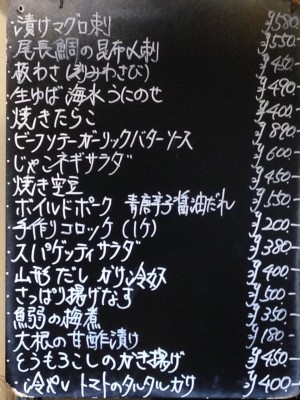 ・漬けマグロ刺 ¥580-
・尾長鯛の昆布〆刺 ¥550-
・板わさ(刻みわさび) ¥450-
・生ゆば 海水うにのせ ¥490-
・焼きたらこ ¥400-
・ビーフソテーガーリックバターソース ¥890-
・じゃこネギサラダ ¥600-
・焼き空豆 ¥450-
・ボイルドポーク 青唐辛子醤油だれ ¥550-
・手作りコロッケ(1ケ) ¥200-
・スパゲッティサラダ ¥380-
・山形だし がけ冷奴 ¥400-
・さっぱり揚げなす ¥500-
・鰯の梅煮 ¥350-
・大根の甘酢漬け ¥180-
・とうもろこしのかき揚げ ¥450-
・冷やしトマトのタルタルがけ ¥400-